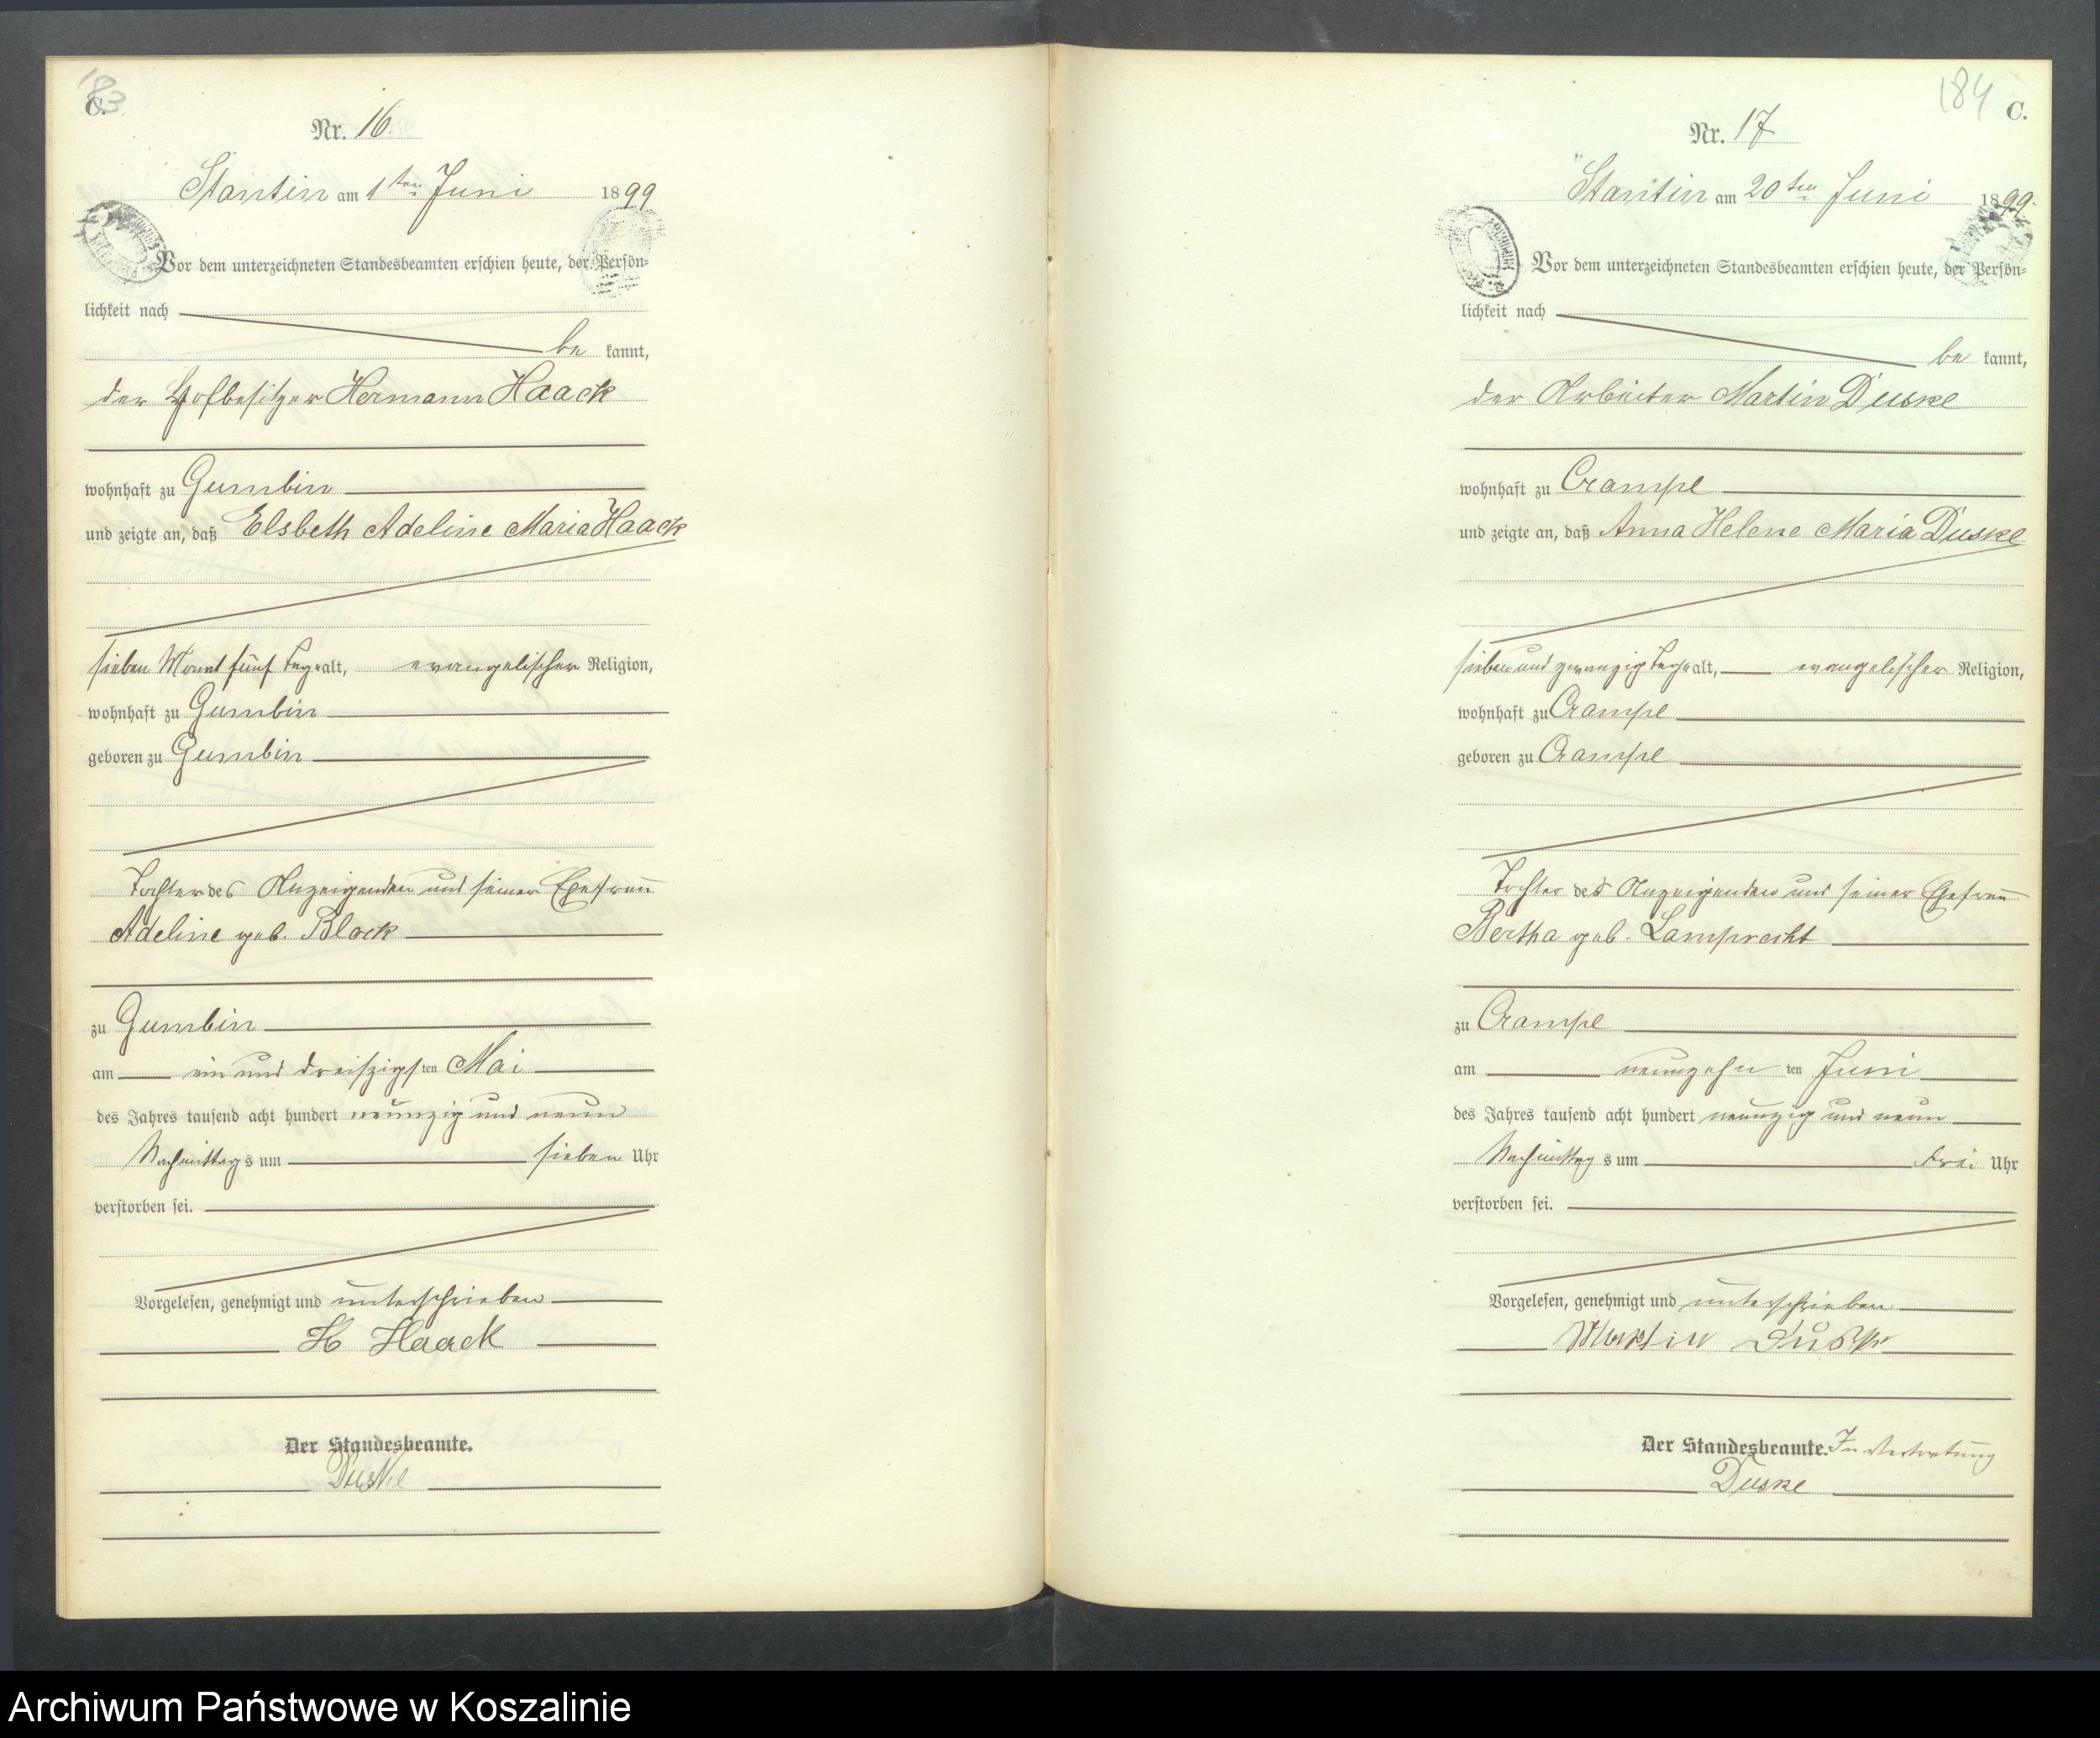 183
C.
Nr. 16
Stantin am 1ten Juni 1899
Vor dem unterzeichneten Standesbeamten erschien heute, der Persön=
lichkeit nach
be kannt,
der Hofbesitzer Hermann Haack
wohnhaft zu Gumbin
und zeigte an, daß Elsbeth Adeline Maria Haack
sieben Monat fünf Tage alt, evangelischer Religion,
wohnhaft zu Gumbin
geboren zu Gumbin
Tochter des Anzeigenden und seiner Ehefrau
Adeline geb. Block
zu Gumbin
am ein und dreiszigsten Mai
des Jahres tausend acht hundert neunzig und neun
Nachmittags um sieben Uhr
verstorben sei.
Vorgelesen, genehmigt und unterschrieben
H Haack
Der Standesbeamte.
Duske
184
C.
Nr. 17
Stantin am 20ten Juni 1899.
Vor dem unterzeichneten Standesbeamten erschien heute, der Persön=
lichkeit nach
be kannt,
der Arbeiter Martin Duske
wohnhaft zu Crampe
und zeigte an, daß Anna Helene Maria Duske
sieben und zwanzig Tage alt, evangelischer Religion,
wohnhaft zu Crampe
geboren zu Crampe
Tochter des Anzeigenden und seiner Ehefrau
Bertha geb. Lamprecht
zu Crampe
am neunzehnten Juni
des Jahres tausend acht hundert neunzig und neun
Nachmittags um drei Uhr
verstorben sei.
Vorgelesen, genehmigt und unterschrieben
Martin Duske
Der Standesbeamte. In Vertretung
Duske
Archiwum Państwowe w Koszalinie